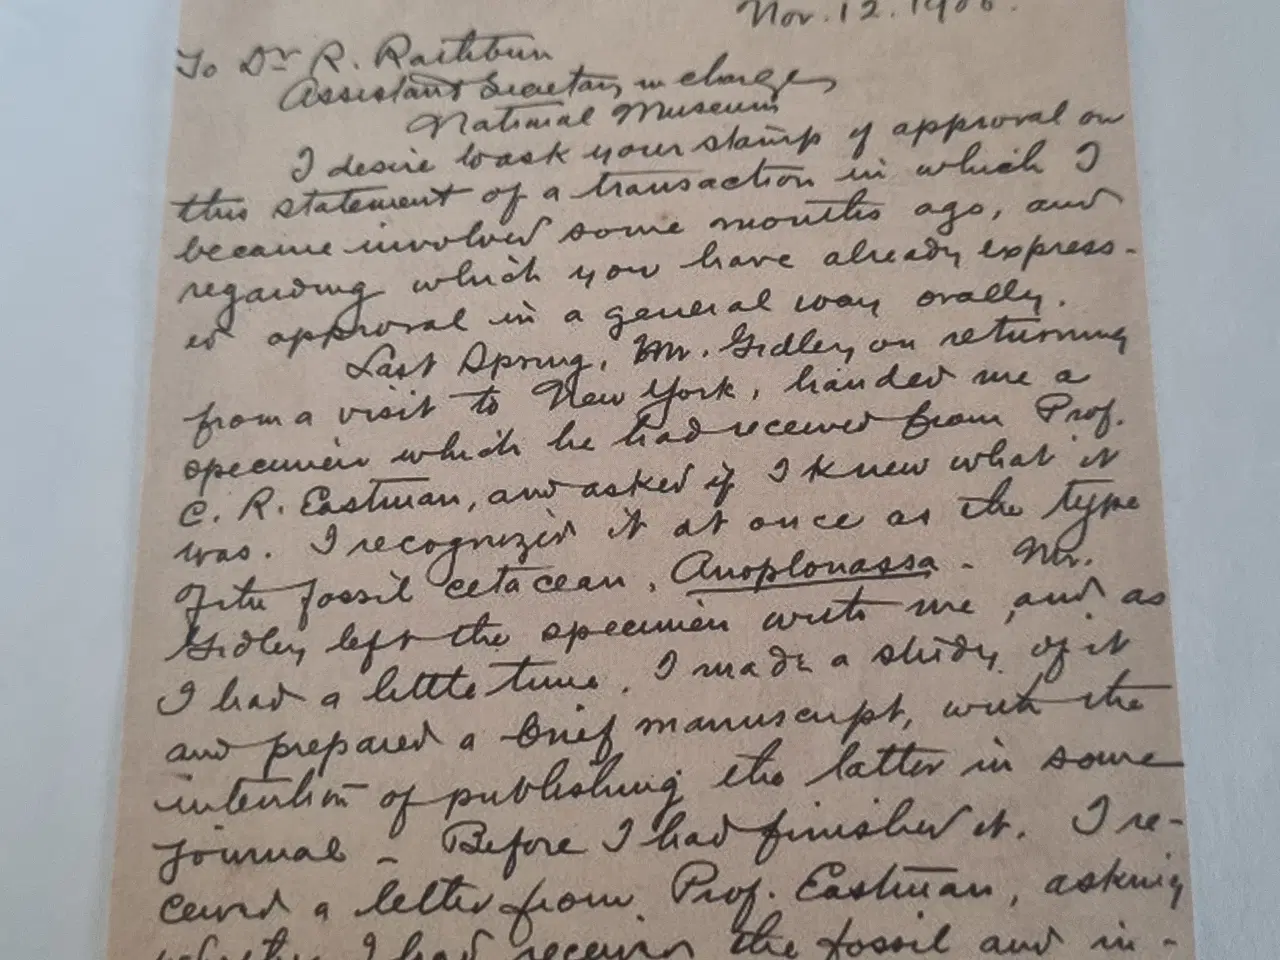 Nov. 12. 1906.
To Dr R. Rathbun
Assistant Secretary in charge
National Museum
I desire to ask your stamp of approval on
this statement of a transaction in which I
became involved some months ago, and
regarding which you have already express-
ed approval in a general way orally.
Last Spring, Mr. Gidley on returning
from a visit to New York, handed me a
specimen which he had received from Prof.
C. R. Eastman, and asked if I knew what it
was. I recognized it at once as the type
of the fossil cetacean, Anoplonassa. Mr.
Gidley left the specimen with me, and as
I had a little time, I made a study of it
and prepared a brief manuscript, with the
intention of publishing the latter in some
journal. Before I had finished it, I re-
ceived a letter from Prof. Eastman, asking
whether I had received the fossil and in-